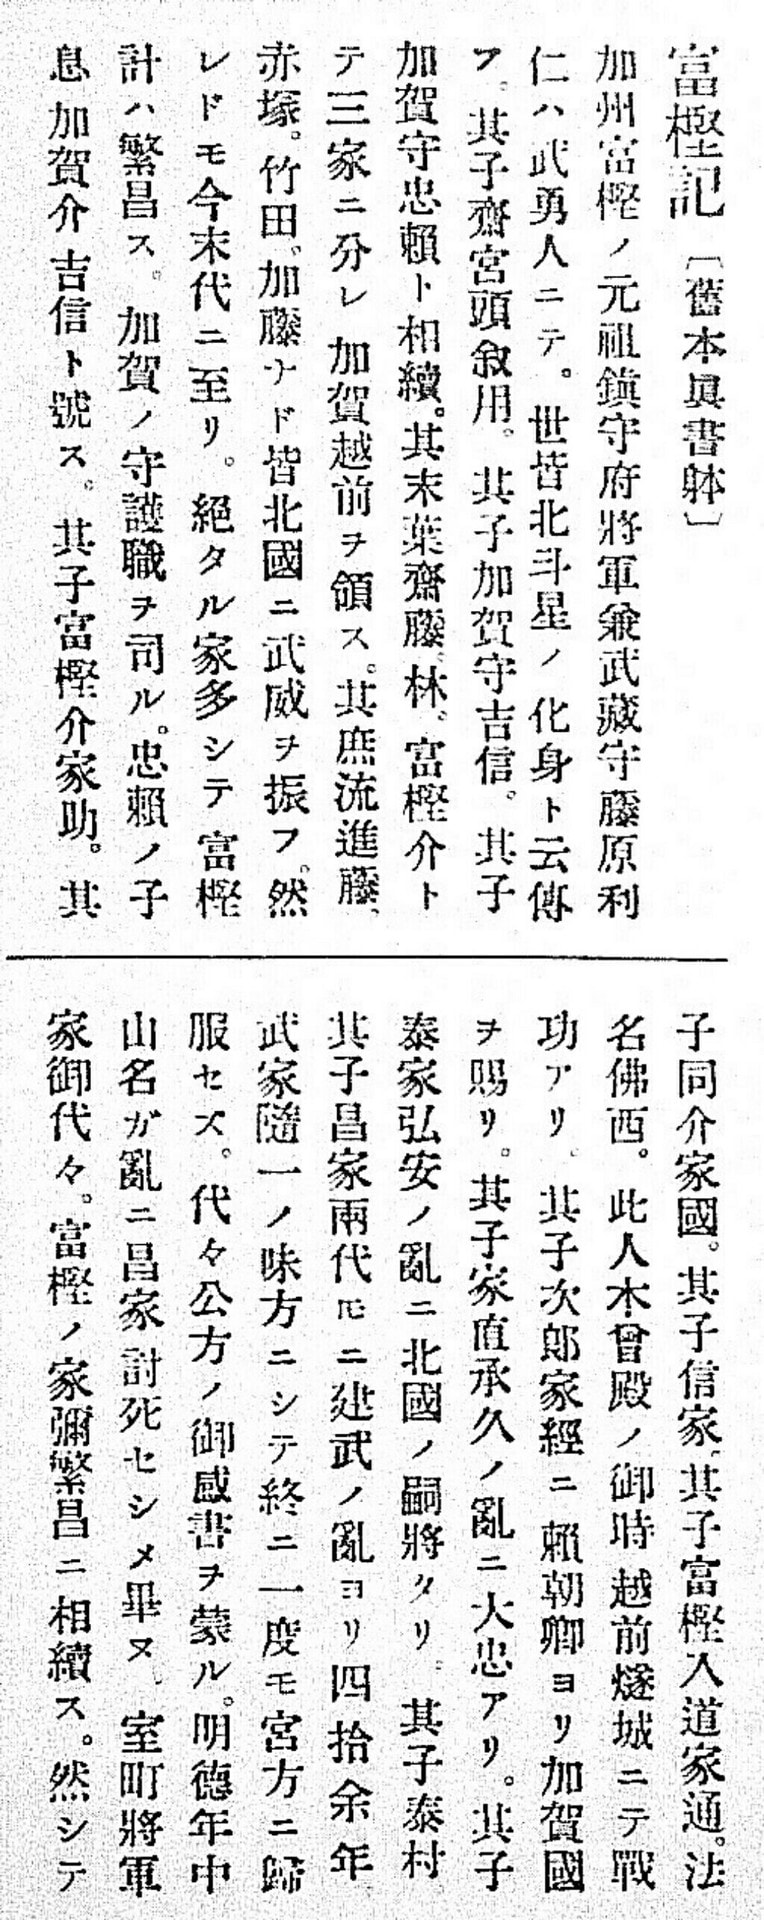 富樫記〔舊本眞書躰〕
加州富樫ノ元祖鎭守府將軍兼武藏守藤原利
仁ハ武勇人ニテ。世皆北斗星ノ化身ト云傳
フ。其子齋宮頭敘用。其子加賀守吉信。其子
加賀守忠賴ト相續。其末葉齋藤。林。富樫介ト
テ三家ニ分レ加賀越前ヲ領ス。其庶流進藤。
赤塚。竹田。加藤ナド皆北國ニ武威ヲ振フ。然
レドモ今末代ニ至リ。絕タル家多シテ富樫
計ハ繁昌ス。加賀ノ守護職ヲ司ル。忠賴ノ子
息加賀介吉信ト號ス。其子富樫介家助。其
子同介家國。其子信家。其子富樫入道家通。法
名佛西。此人木曾殿ノ御時越前燧城ニテ戰
功アリ。其子次郎家經ニ賴朝卿ヨリ加賀國
ヲ賜リ。其子家直承久ノ亂ニ大忠アリ。其子
泰家弘安ノ亂ニ北國ノ嗣將タリ。其子泰村
其子昌家兩代𪜈ニ建武ノ亂ヨリ四拾余年
武家隨一ノ味方ニシテ終ニ一度モ宮方ニ歸
服セズ。代々公方ノ御感書ヲ蒙ル。明德年中
山名ガ亂ニ昌家討死セシメ畢ヌ。室町將軍
家御代々。富樫ノ家彌繁昌ニ相續ス。然シテ